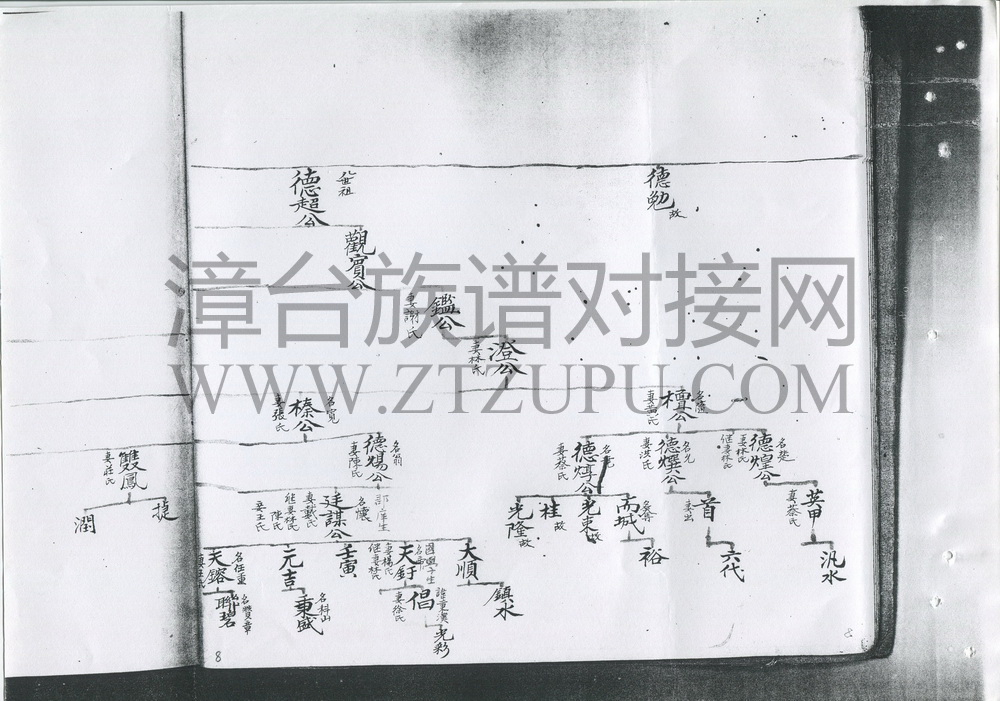 德勉
故
八世祖
德超公
觀賓公
鑑公
妻謝氏
澄公
妻林氏
檀公
榛公
名寬
妻張氏
德煌公
妻林氏
继妻林氏
德熼公
名光
妻洪氏
德焞公
妻蔡氏
德煬公
名翁
妻陳氏
英甲
妻蔡氏
首
妻出
光東
故
桂
故
光隆
故
廷謀公
名懷
妻戴氏
继妻林氏
陳氏
妻王氏
雙鳳
妻莊氏
捷
潤
汎水
六代
裕
大順
天釪
妻楊氏
继妻林氏
壬寅
元吉
天鎔
名任重
鎮水
倡
妻徐氏
光彩
秉盛
名科山
聯碧
名贊章
漳台族谱对接网
WWW.ZTZUPU.COM
8